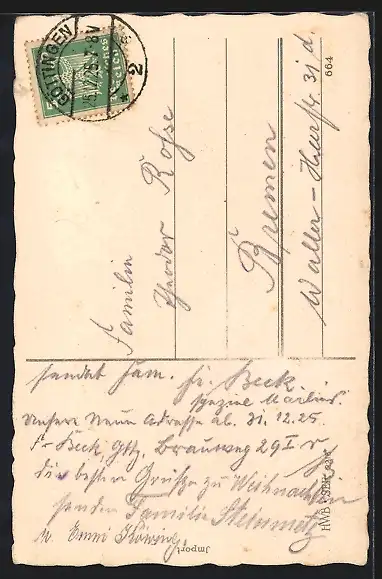 GÖTTINGEN
25 7-8V
2
Familie
Theodor Rohse
Bremen
Waller-Heerstr. 31 d.
664
sendet Fam. Fr. Beck.
speziell
Unsere Neue Adresse ab. 31.12.25.
F. Beck, Gttg. Brauweg 29 I r
die besten Grüße zu Weihnachten
senden Familie Steinmetz
u. Emmi
HWB SER
Import